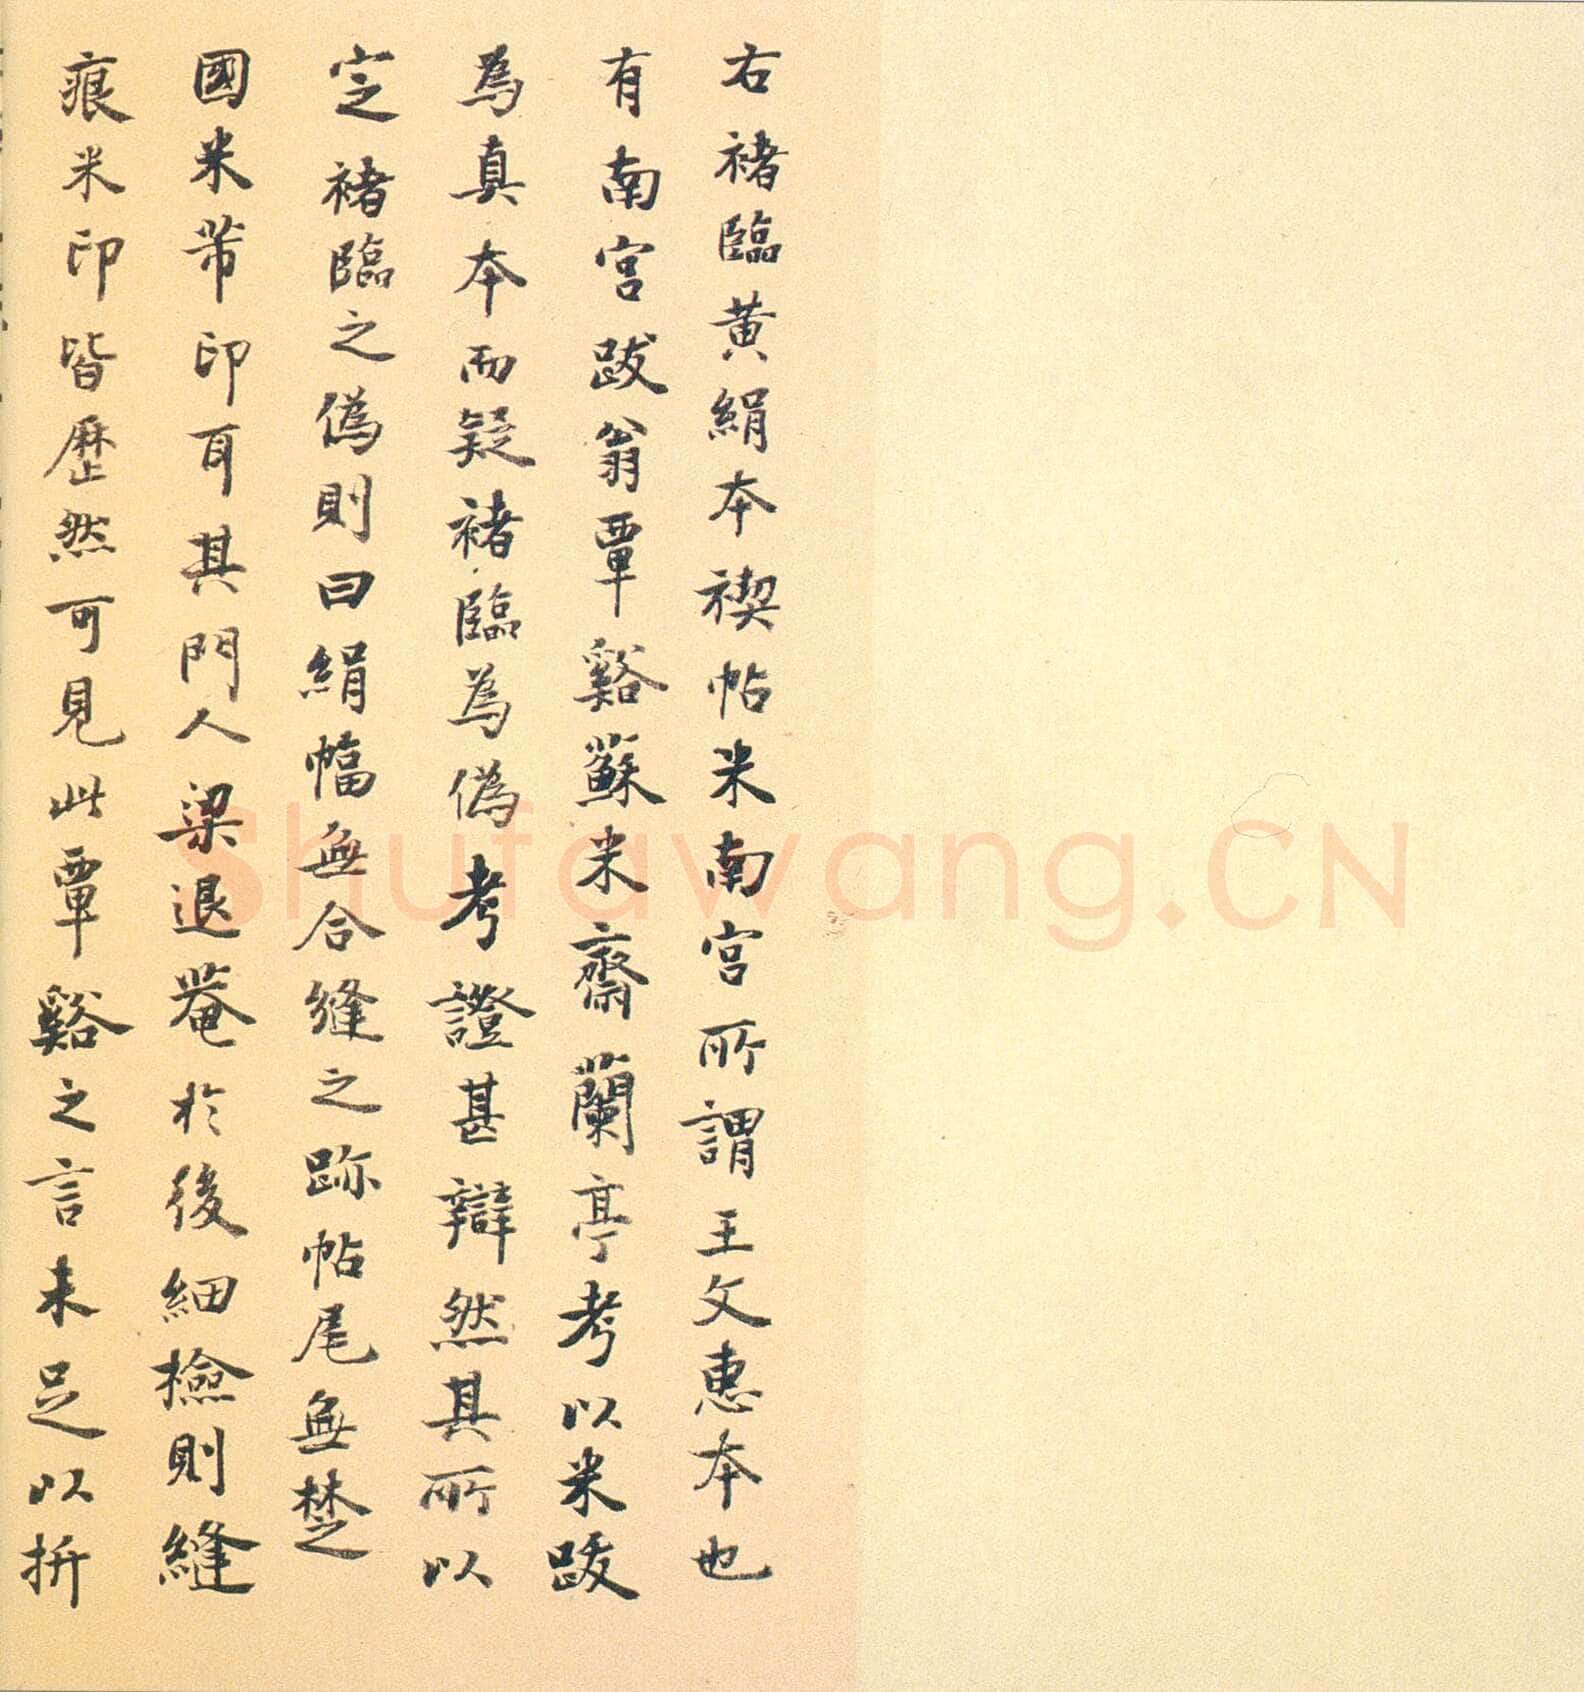 右褚臨黄絹本禊帖米南宮所謂王文惠本也
有南宮跋翁覃谿蘇米齋蘭亭考以米跋
為真本而疑褚臨為偽考證甚辯然其所以
定褚臨之偽則曰絹幅無合縫之跡帖尾無楚
國米芾印耳其門人梁退菴於後細撿則縫
痕米印皆歷然可見此覃谿之言未足以折
Shufawang.CN